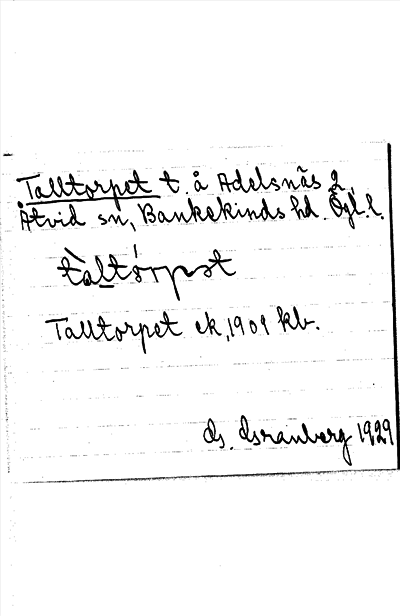 Talltorpet t. å Adelsnäs 2,
Åtvid sn, Bankekinds hd. Ögl. l.
tàltórpət
Talltorpet ek, 1901 kb.
1929